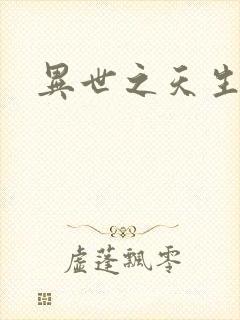 異世之天生
虛蓬飄零